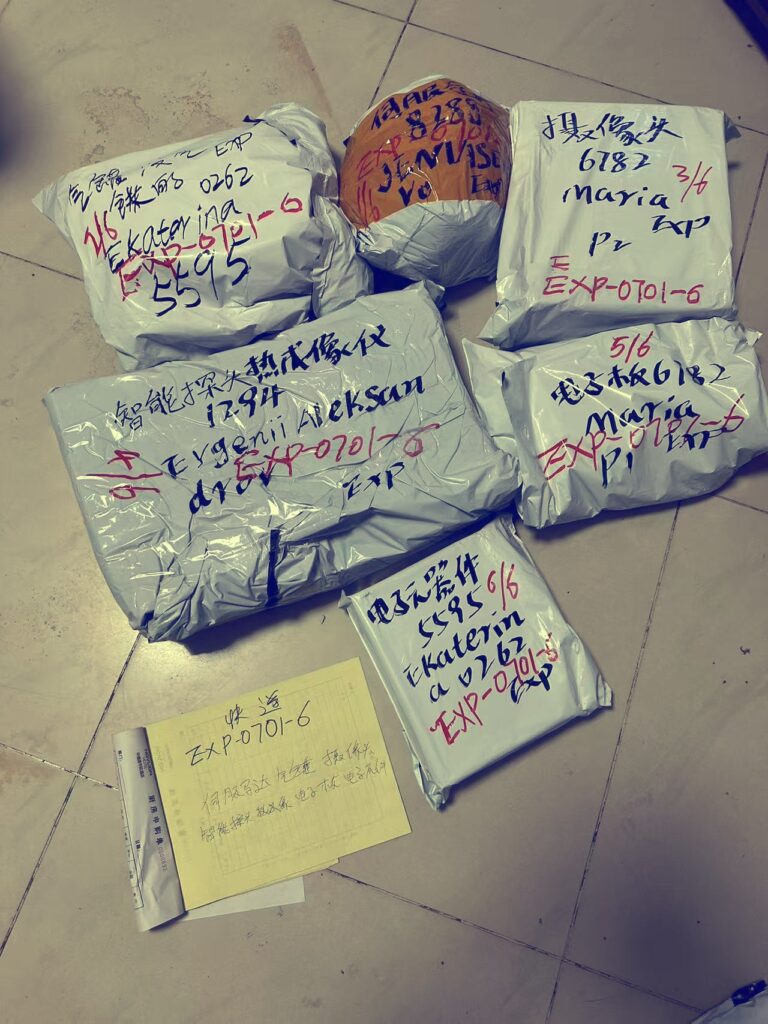 气缸 EXP
0262
2/6
Ekaterina
EXP-0701-6
5595
伺服
8288
EXP 0701
1/6
EXP
摄像头
6782
3/6
Maria
EXP
P2
EXP-0701-6
智能探头热成像仪
1294
4/6
Evgenii Aleksan
EXP-0701-6
drov
EXP
5/6
电子板6782
Maria
EXP-0701-6
P1 EXP
电子元器件
5595 6/6
Ekaterin
a 0262
EXP-0701-6
EXP
快递
EXP-0701-6
伺服马达 摄像头
智能探头 热成像 电子板 电子元件